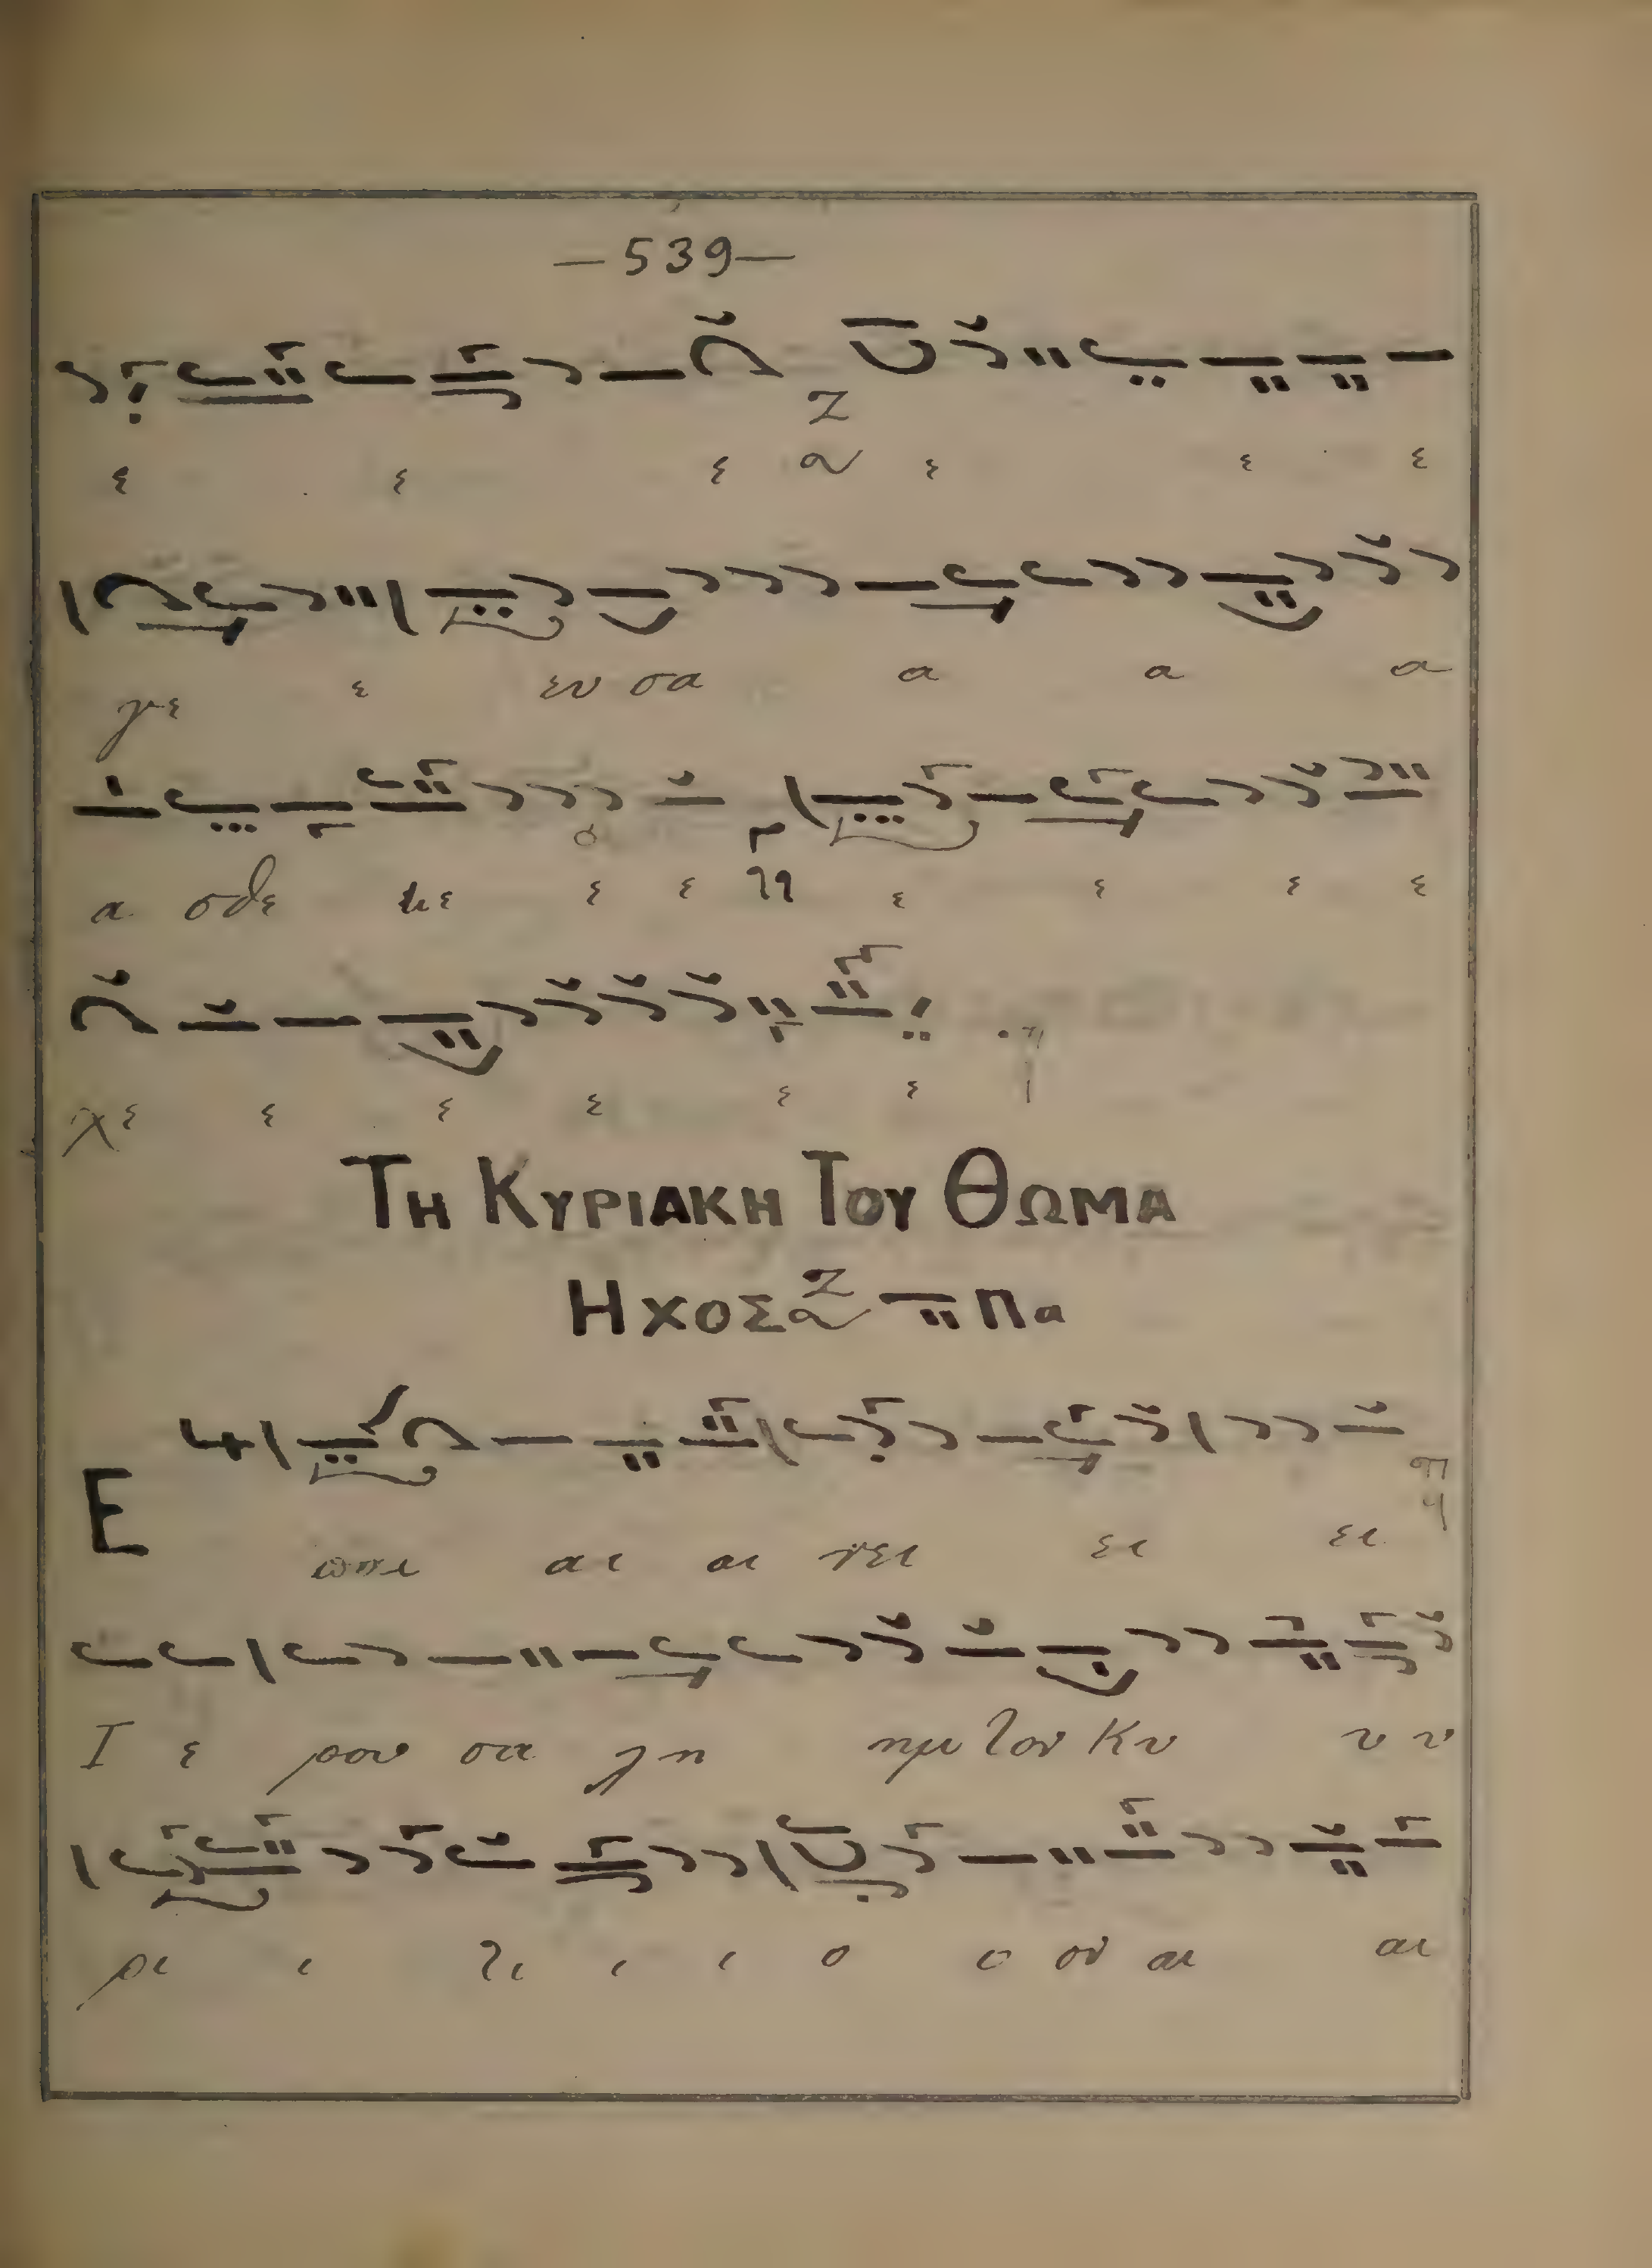 —539—
ε ε ε ε ε ε
γε ε ευ σα α α α
α σθε ε ε ε ε ε ε
χε ε ε ε ε ε
ΤΗ ΚΥΡΙΑΚΗ ΤΟΥ ΘΩΜΑ
ΗΧΟΣ Πα
Ε παι αι αι νει ει ει
Ι ε ρου σα λη ημ τον Κυ υ υ
ρι ι τι ι ι ο ο ον αι αι